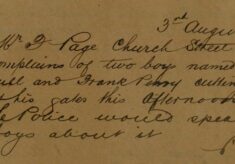 3rd Augu
Mr D Page Church Street
omplains of two boy named
ull and Frank Penny cutting
his gates this afternoon
e Police would spea
oys about it